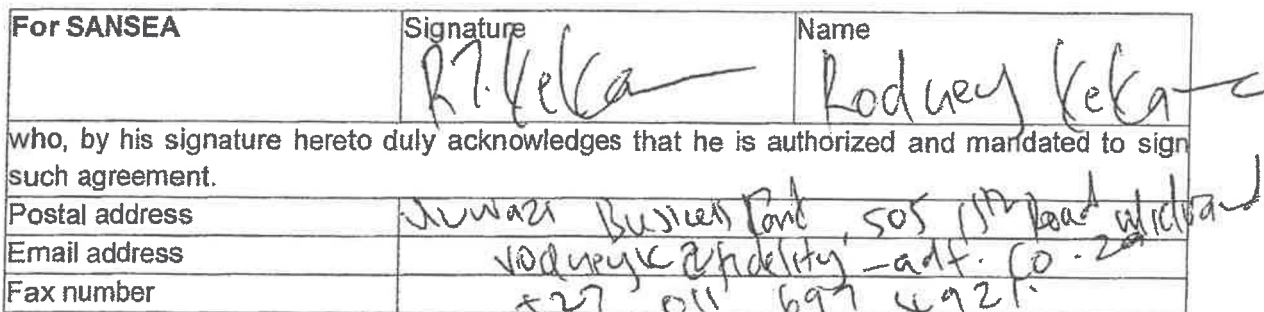 For SANSEA Signature Name
R.T. Keka Rodney Keka
who, by his signature hereto duly acknowledges that he is authorized and mandated to sign
such agreement.
Postal address Business 505 15th Road Midrand
Email address rodneyk@fidelity-adt.co.za
Fax number +27 011 697